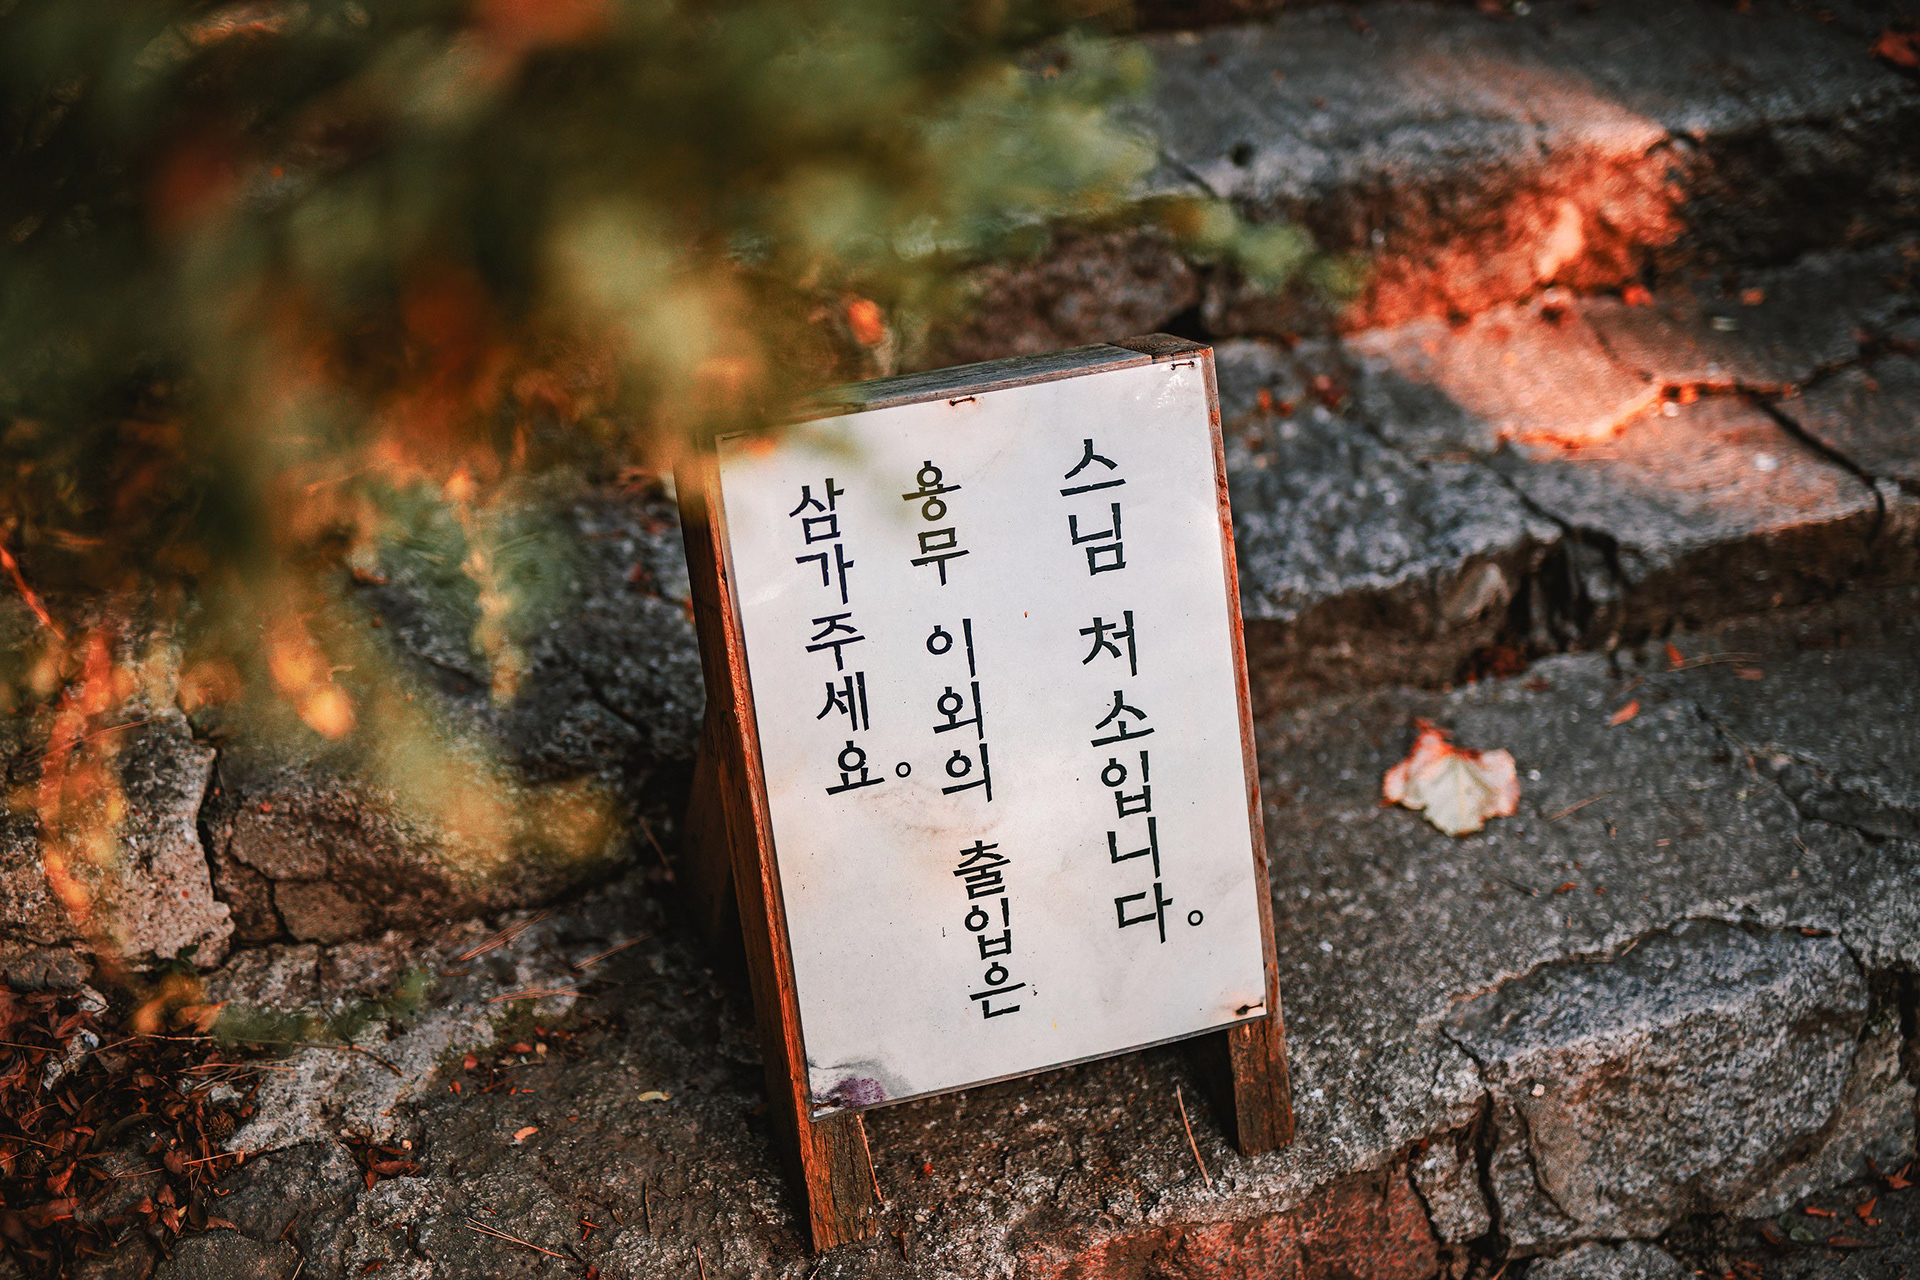 스님 처소입니다。
용무 이외의 출입은
삼가주세요。